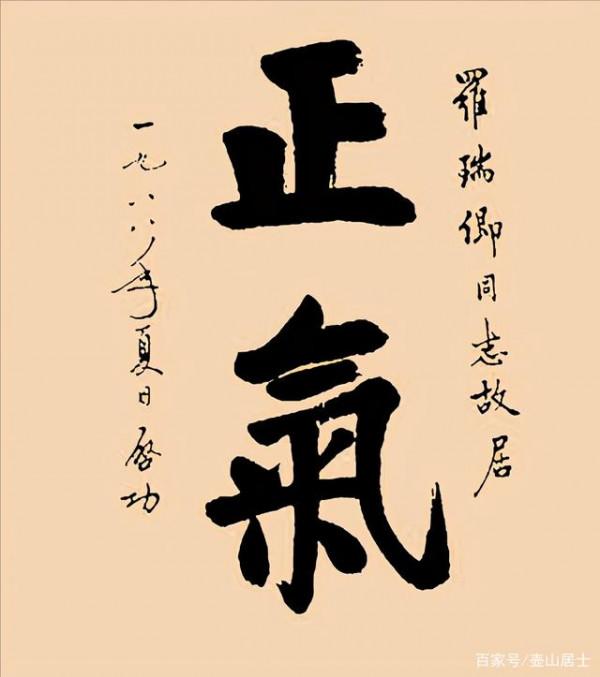 羅瑞卿同志故居
正氣
一九八八年夏日啓功
百家号/壶山居士